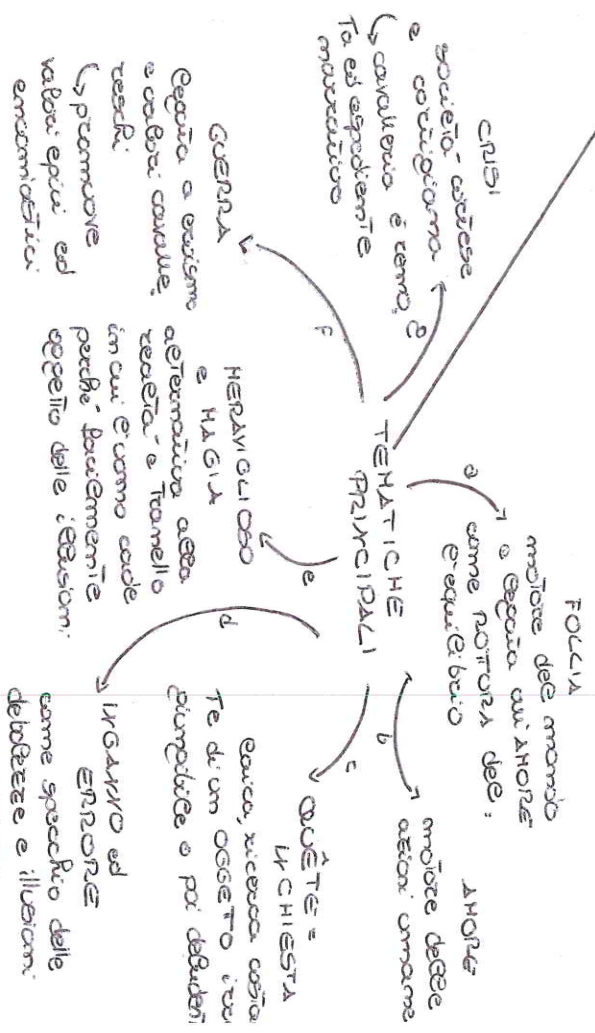 TEMATICHE
PRINCIPALI
a
FOLLIA
motore del mondo
e legata all'AMORE
come ROTTURA del=
l'equilibrio
b
AMORE
motore delle
azioni umane
c
QUÊTE =
INCHIESTA
laica, ricerca costan
te di un OGGETTO
e poi
d
INGANNO ed
ERRORE
come specchio delle
debolezze e illusioni
e
MERAVIGLIOSO
e MAGIA
alternativa alla
realtà e tranello
in cui l'uomo cade
perché facilmente
oggetto delle illusioni
f
GUERRA
legata a eroismo
e valori cavalle,
reschi
↳ promuove
valori epici ed
encomiastici
g
CRISI
società cortese
e cortigiana
↳ cavalleria è remo,
ta ed espediente
narrativo